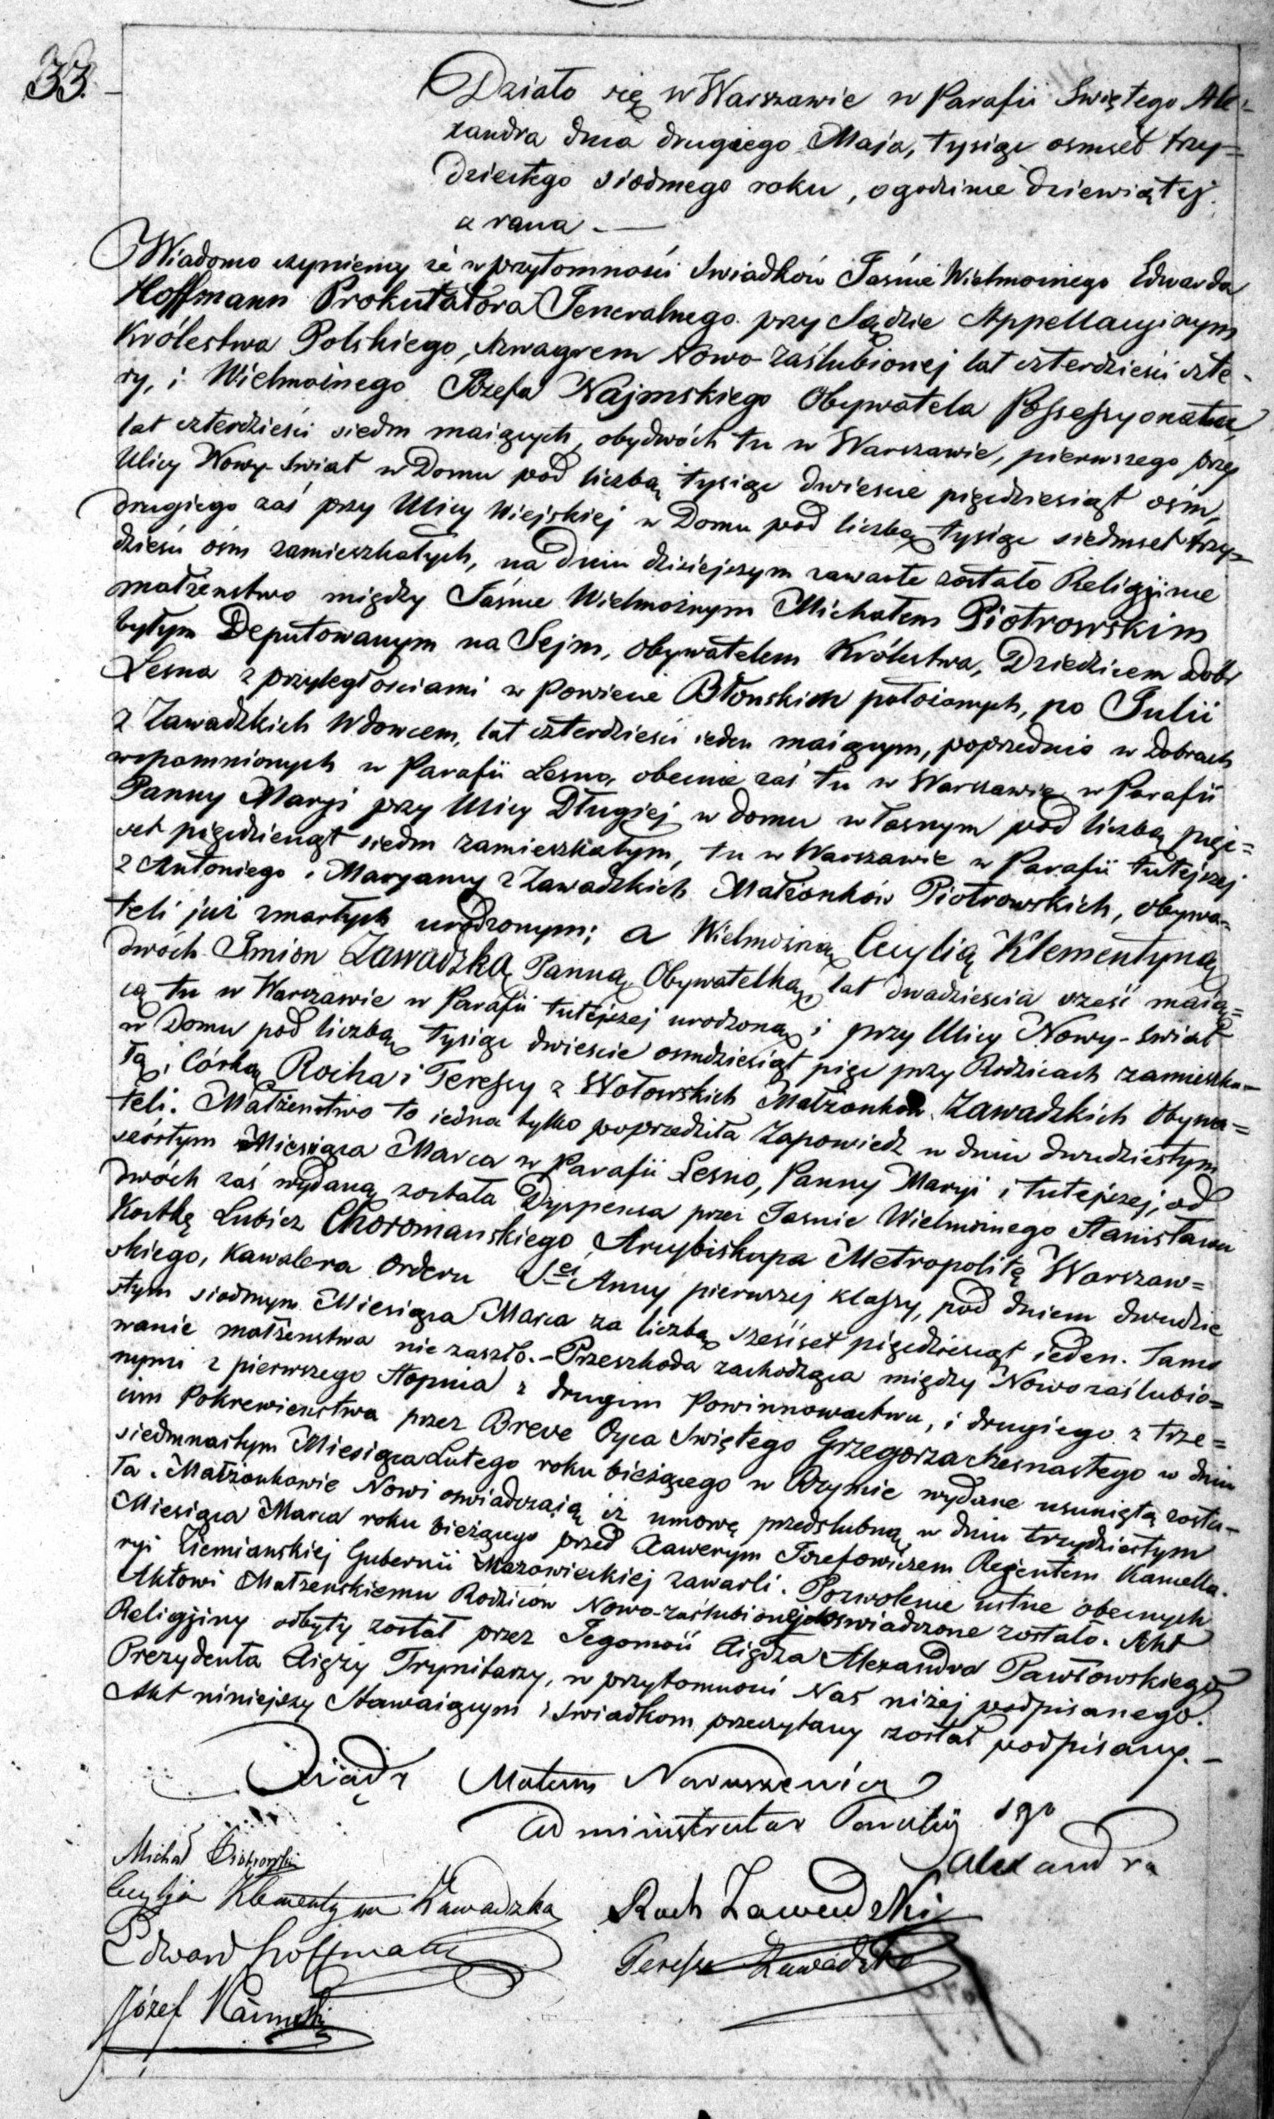 33.
Działo się w Warszawie w Parafii Swiętego Ale-
xandra dnia drugiego Maja, tysiąc osmset trzy=
dziestego siodmego roku, o godzinie dziewiątej
z rana. —
Wiadomo czyniemy że w przytomności Swiadków Jaśnie Wielmożnego Edwarda
Hoffmann Prokuratora Jeneralnego przy Sądzie Appellacyjnym
Królestwa Polskiego, szwagrem Nowo-Zaślubionej lat czterdzieści czte-
ry, i Wielmożnego Józefa Najmskiego Obywatela Possessyonata,
lat czterdzieści siedm maiących, obydwóch tu w Warszawie, pierwszego przy
Ulicy Nowy-Swiat w Domu pod liczbą tysiąc dwieście pięćdziesiąt ośm,
drugiego zaś przy Ulicy Wiejskiej w Domu pod liczbą tysiąc siedmset trzy=
dzieści ośm zamieszkałych, na dniu dzisiejszym zawarte zostało Religijne
małżenstwo między Jaśnie Wielmożnym Michałem Piotrowskim
byłym Deputowanym na Sejm, obywatelem Królestwa, Dziedzicem Dobr
Lesna z przyległościami w Powiecie Błonskim położonych, po Julii
z Zawadzkich Wdowcem, lat czterdzieści ieden maiącym, poprzednio w Dobrach
wspomnionych w Parafii Lesno, obecnie zaś tu w Warszawie w Parafii
Panny Maryi przy Ulicy Długiej w domu własnym pod liczbą pięć=
set pięćdziesiąt siedm zamieszkałym, tu w Warszawie w Parafii tutejszej
z Antoniego i Maryanny z Zawadzkich Małżonków Piotrowskich, obywa-
teli już zmarłych urodzonym; a Wielmożną Cecylią Klementyną
dwóch Imion Zawadzką Panną, Obywatelką, lat dwadzieścia sześć maią=
cą tu w Warszawie w Parafii tutejszej urodzoną i przy Ulicy Nowy-Swiat
w Domu pod liczbą tysiąc dwieście osmdziesiąt pięć przy Rodzicach zamieszka-
łą, Córką Rocha i Teressy z Wołowskich Małżonków Zawadzkich Obywa=
teli. Małżenstwo to iedna tylko poprzedziła Zapowiedź w dniu dwudziestym
szóstym Miesiąca Marca w Parafii Lesno, Panny Maryi i tutejszej, od
dwóch zaś wydaną została Dyspensa przez Jasnie Wielmożnego Stanisława
Kostkę Lubicz Choromanskiego Arcybiskupa Metropolitę Warszaw=
skiego, Kawalera Orderu Stej Anny pierwszej klassy, pod dniem dwudzie
stym siodmym Miesiąca Marca za liczbą sześćset pięćdziesiąt ieden. Tamo
wanie małżenstwa nie zaszło. – Przeszkoda zachodząca między Nowozaślubio=
nymi z pierwszego stopnia z drugim Powinnowactwa, i drugiego z trze=
cim Pokrewienstwa przez Breve Oyca Swiętego Grzegorza szesnastego w dniu
siedmnastym Miesiąca Lutego roku bieżącego w Rzymie wydane usuniętą zosta-
ła. Małżonkowie Nowi oswiadczają iż umowę przedslubną w dniu trzydziestym
Miesiąca Marca roku bieżącego przed Xawerym Józefowiczem Rejentem Kancella-
ryi Ziemianskiej Gubernii Mazowieckiej zawarli. Pozwolenie ustne obecnych
Aktowi Małżenskiemu Rodziców Nowo-zaślubionej oswiadczone zostało. Akt
Religijny odbyty został przez Jegomość Xiędza Alexandra Pawłowskiego
Prezydenta Xięży Trynitarzy, w przytomności Nas niżej podpisanego.
Akt niniejszy Stawaiącym i swiadkom przeczytany został podpisany. –
Xiądz Mateusz Naruszewicz
Administrator Parafij Sgo
Alexandra
Michał Piotrowski
Cecylja Klementyna Zawadzka
Roch Zawadzki
Edward Hoffmann
Teressa Zawadzka
Józef Naimski